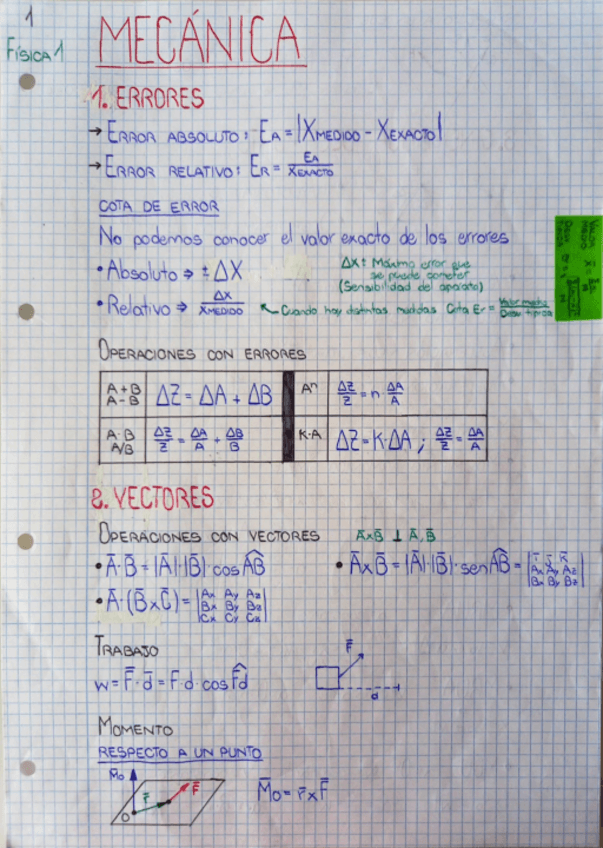 1
FÍSICA 1
MECÁNICA
1. ERRORES
→ ERROR ABSOLUTO: EA = |XMEDIDO - XEXACTO|
→ ERROR RELATIVO: ER = EA/XEXACTO
COTA DE ERROR
No podemos conocer el valor exacto de los errores
• Absoluto ⇒ ± ΔX
ΔX: Máximo error que
se puede cometer
(Sensibilidad del aparato)
• Relativo ⇒ ΔX/XMEDIDO
Cuando hay distintas medidas Cota Er = Valor medio/Desv típica
VALOR MEDIO X̄ =
OPERACIONES CON ERRORES
A+B A-B ΔZ = ΔA + ΔB Aⁿ ΔZ/Z = n · ΔA/A
A·B A/B ΔZ/Z = ΔA/A + ΔB/B K·A ΔZ = K·ΔA ; ΔZ/Z = ΔA/A
2. VECTORES
OPERACIONES CON VECTORES ĀxB̄ ⊥ Ā, B̄
• Ā·B̄ = |Ā|·|B̄| cos AB
• ĀxB̄ = |Ā|·|B̄|· sen AB = | i j k Ax Ay Az Bx By Bz |
• Ā·(B̄xC̄) = | Ax Ay Az Bx By Bz Cx Cy Cz |
TRABAJO
W = F̄·d̄ = F·d·cos Fd
F̄
d
MOMENTO
RESPECTO A UN PUNTO
M̄o
r̄ F̄
O
M̄o = r̄ x F̄